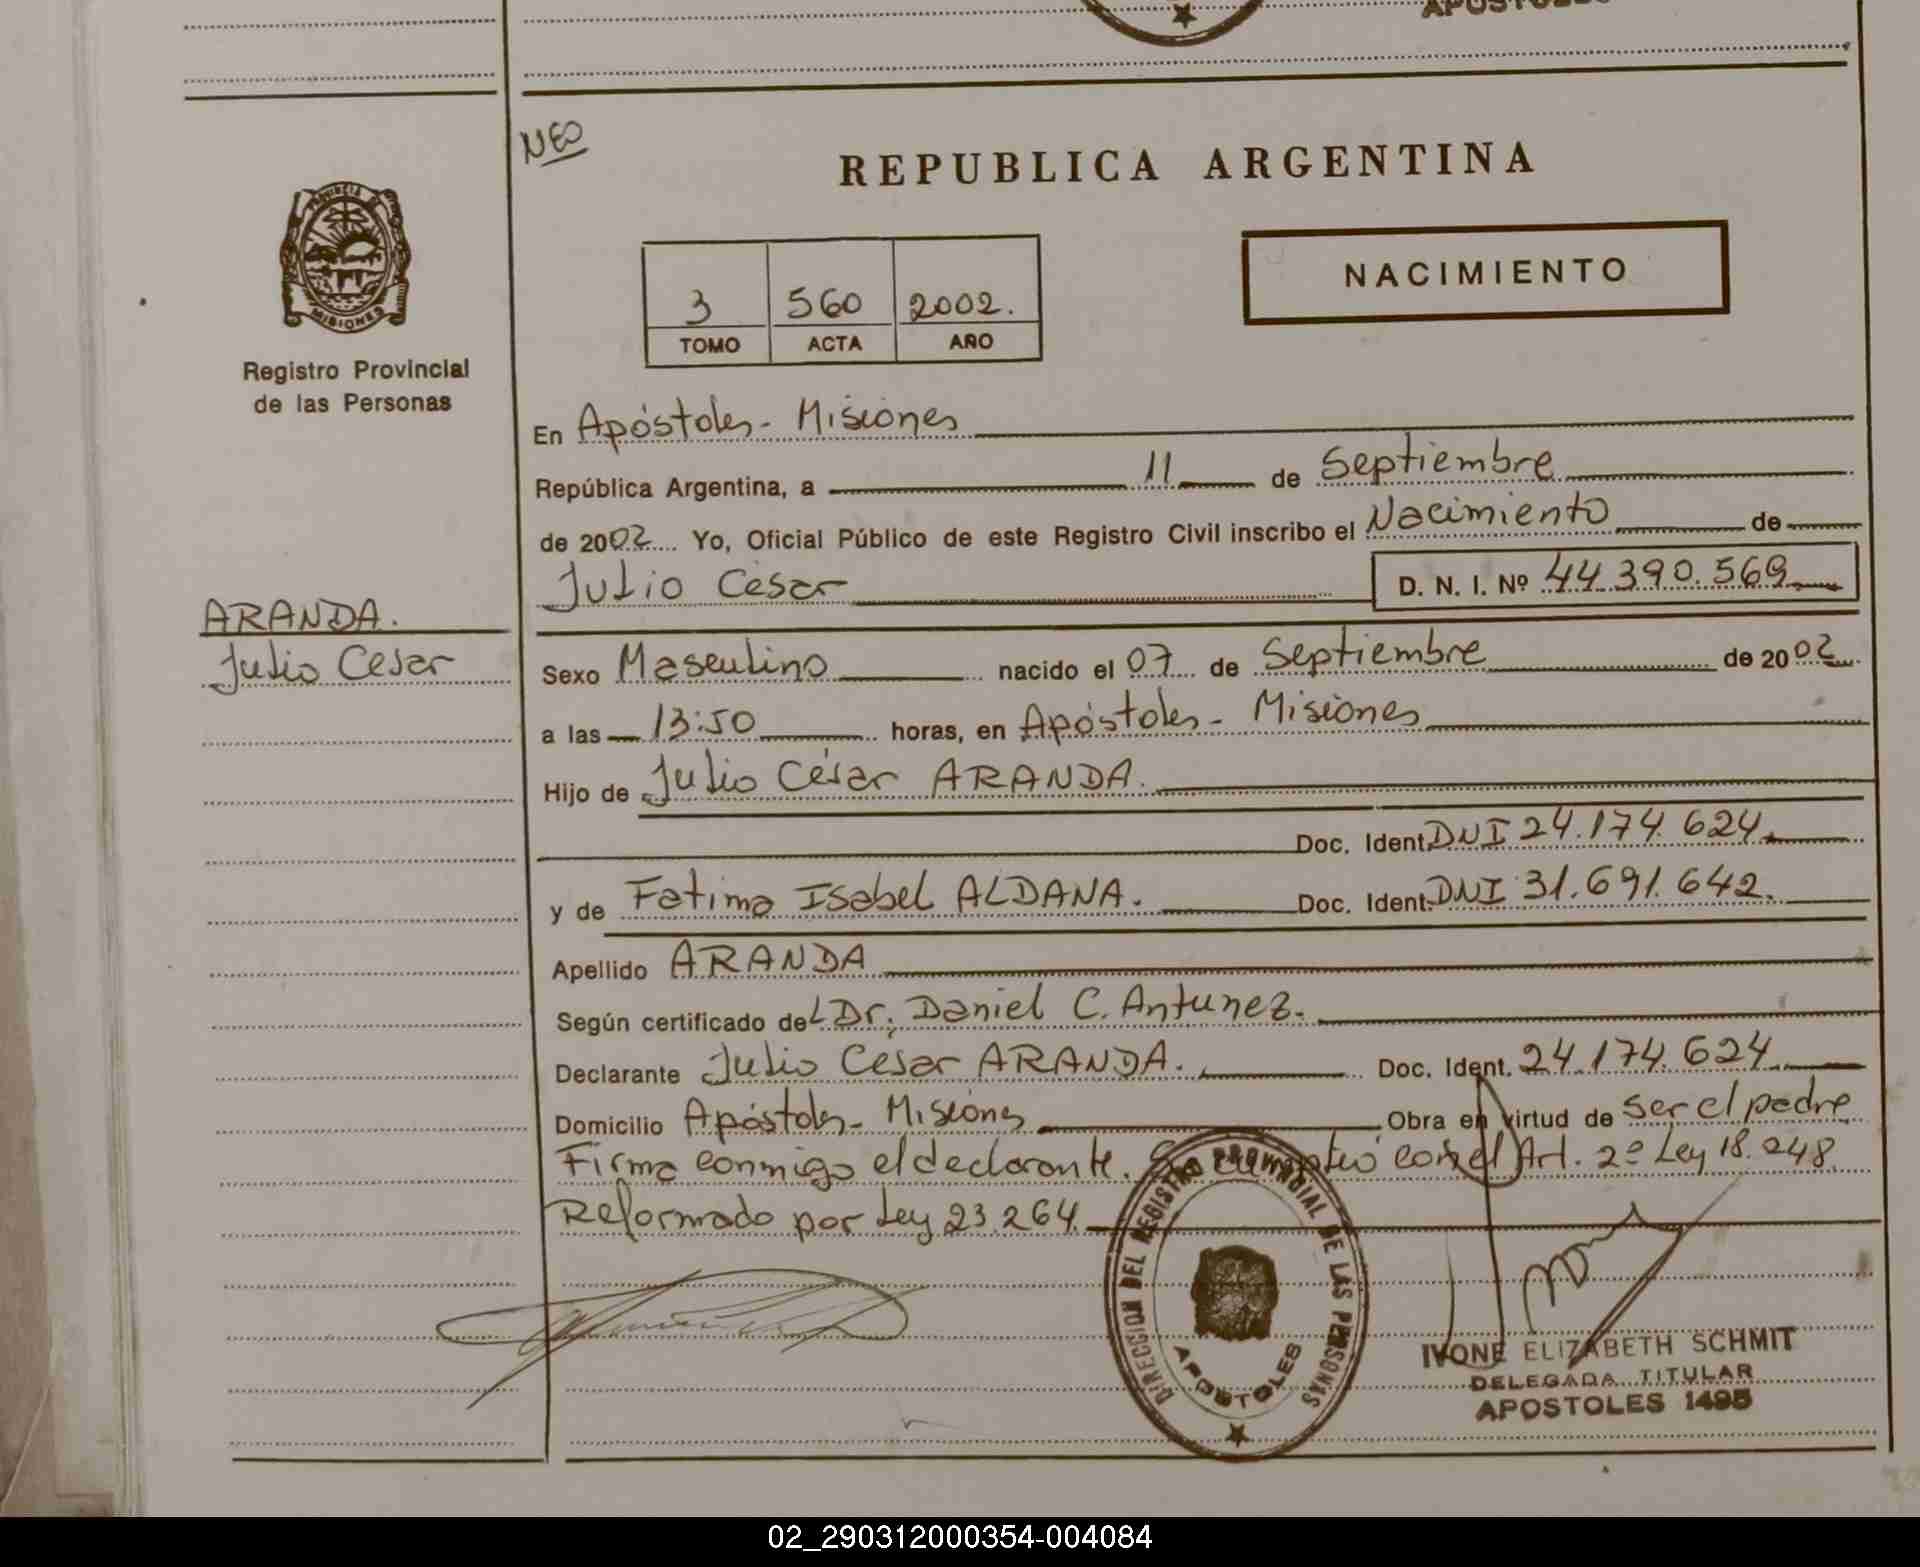 APOSTOLES
NEO
REPUBLICA ARGENTINA
PROVINCIA DE
MISIONES
3 560 2002.
TOMO ACTA AÑO
NACIMIENTO
Registro Provincial
de las Personas
En Apóstoles - Misiones
República Argentina, a 11 de Septiembre
de 2002 Yo, Oficial Público de este Registro Civil inscribo el Nacimiento de
Julio César D. N. I. Nº 44.390.569
ARANDA.
Julio César
Sexo Masculino nacido el 07 de Septiembre de 2002
a las 13:50 horas, en Apóstoles - Misiones
Hijo de Julio César ARANDA.
Doc. Ident. DNI 24.174.624
y de Fatima Isabel ALDANA. Doc. Ident. DNI 31.691.642.
Apellido ARANDA
Según certificado del Dr. Daniel C. Antunez.
Declarante Julio César ARANDA. Doc. Ident. 24.174.624
Domicilio Apóstoles - Misiones Obra en virtud de ser el padre
Firma conmigo el declarante. Se cumplió con el Art. 2º Ley 18.248
Reformado por Ley 23.264.
DIRECCION DEL REGISTRO PROVINCIAL DE LAS PERSONAS
APOSTOLES
IVONE ELIZABETH SCHMIT
DELEGADA TITULAR
APOSTOLES 1495
02_290312000354-004084